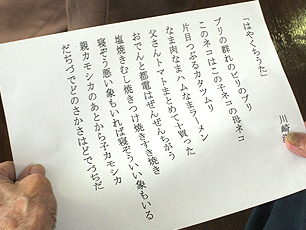 「はやくちうた」
川崎
ブリの群れのビリのブリ
このネコはこの子ネコの母ネコ
片目つぶるカタツムリ
なま肉なまハムなまラーメン
父さんトマトまとめて買った
おでんと都電はぜんぜんちがう
塩焼きむし焼きつけ焼きすき焼き
寝ぞう悪い象もいれば寝ぞういい象もいる
親カモシカのあとから子カモシカ
だちづでどのさかさはどでづちだ